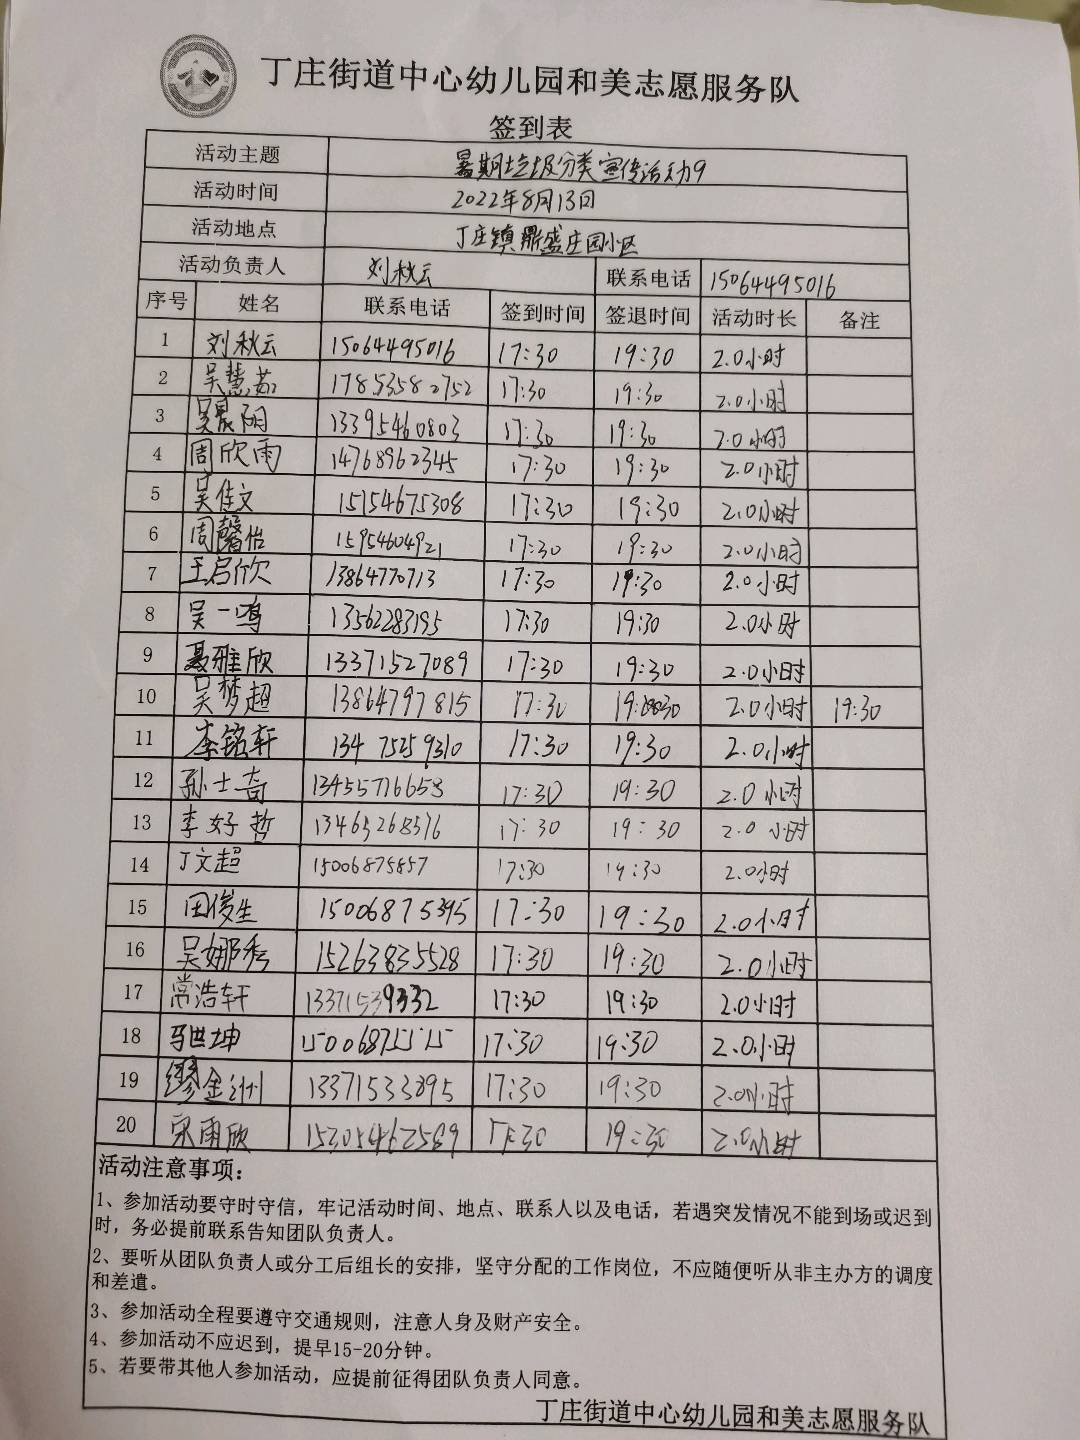 丁庄街道中心幼儿园和美志愿服务队
签到表
活动主题 暑期垃圾分类宣传活动9
活动时间 2022年8月13日
活动地点 丁庄镇鼎盛庄园小区
活动负责人 刘秋云 联系电话 15064495016
序号 姓名 联系电话 签到时间 签退时间 活动时长 备注
1 刘秋云 15064495016 17:30 19:30 2.0小时
2 吴慧茹 17853582752 17:30 19:30 2.0小时
3 吴晨阳 13395460803 17:30 19:30 2.0小时
4 周欣雨 14768962345 17:30 19:30 2.0小时
5 吴佳文 15154675308 17:30 19:30 2.0小时
6 周馨怡 15954604921 17:30 19:30 2.0小时
7 王启欣 13864770713 17:30 19:30 2.0小时
8 吴一鸣 13562283195 17:30 19:30 2.0小时
9 聂雅欣 13371527089 17:30 19:30 2.0小时
10 吴梦超 13864797815 17:30 2.0小时 19:30
11 李铭轩 13475259310 17:30 19:30 2.0小时
12 孙士奇 13455716658 17:30 19:30 2.0小时
13 李好哲 13465268576 17:30 19:30 2.0小时
14 丁文超 15006875857 17:30 19:30 2.0小时
15 田俊生 15006875395 17:30 19:30 2.0小时
16 吴娜秀 15263835528 17:30 19:30 2.0小时
17 常浩轩 13371539332 17:30 19:30 2.0小时
18 马世坤 15006875515 17:30 19:30 2.0小时
19 缪金洲 13371533895 17:30 19:30 2.0小时
20 宋雨欣 15305462589 17:30 19:30 2.0小时
活动注意事项：
1、参加活动要守时守信，牢记活动时间、地点、联系人以及电话，若遇突发情况不能到场或迟到
时，务必提前联系告知团队负责人。
2、要听从团队负责人或分工后组长的安排，坚守分配的工作岗位，不应随便听从非主办方的调度
和差遣。
3、参加活动全程要遵守交通规则，注意人身及财产安全。
4、参加活动不应迟到，提早15-20分钟。
5、若要带其他人参加活动，应提前征得团队负责人同意。
丁庄街道中心幼儿园和美志愿服务队